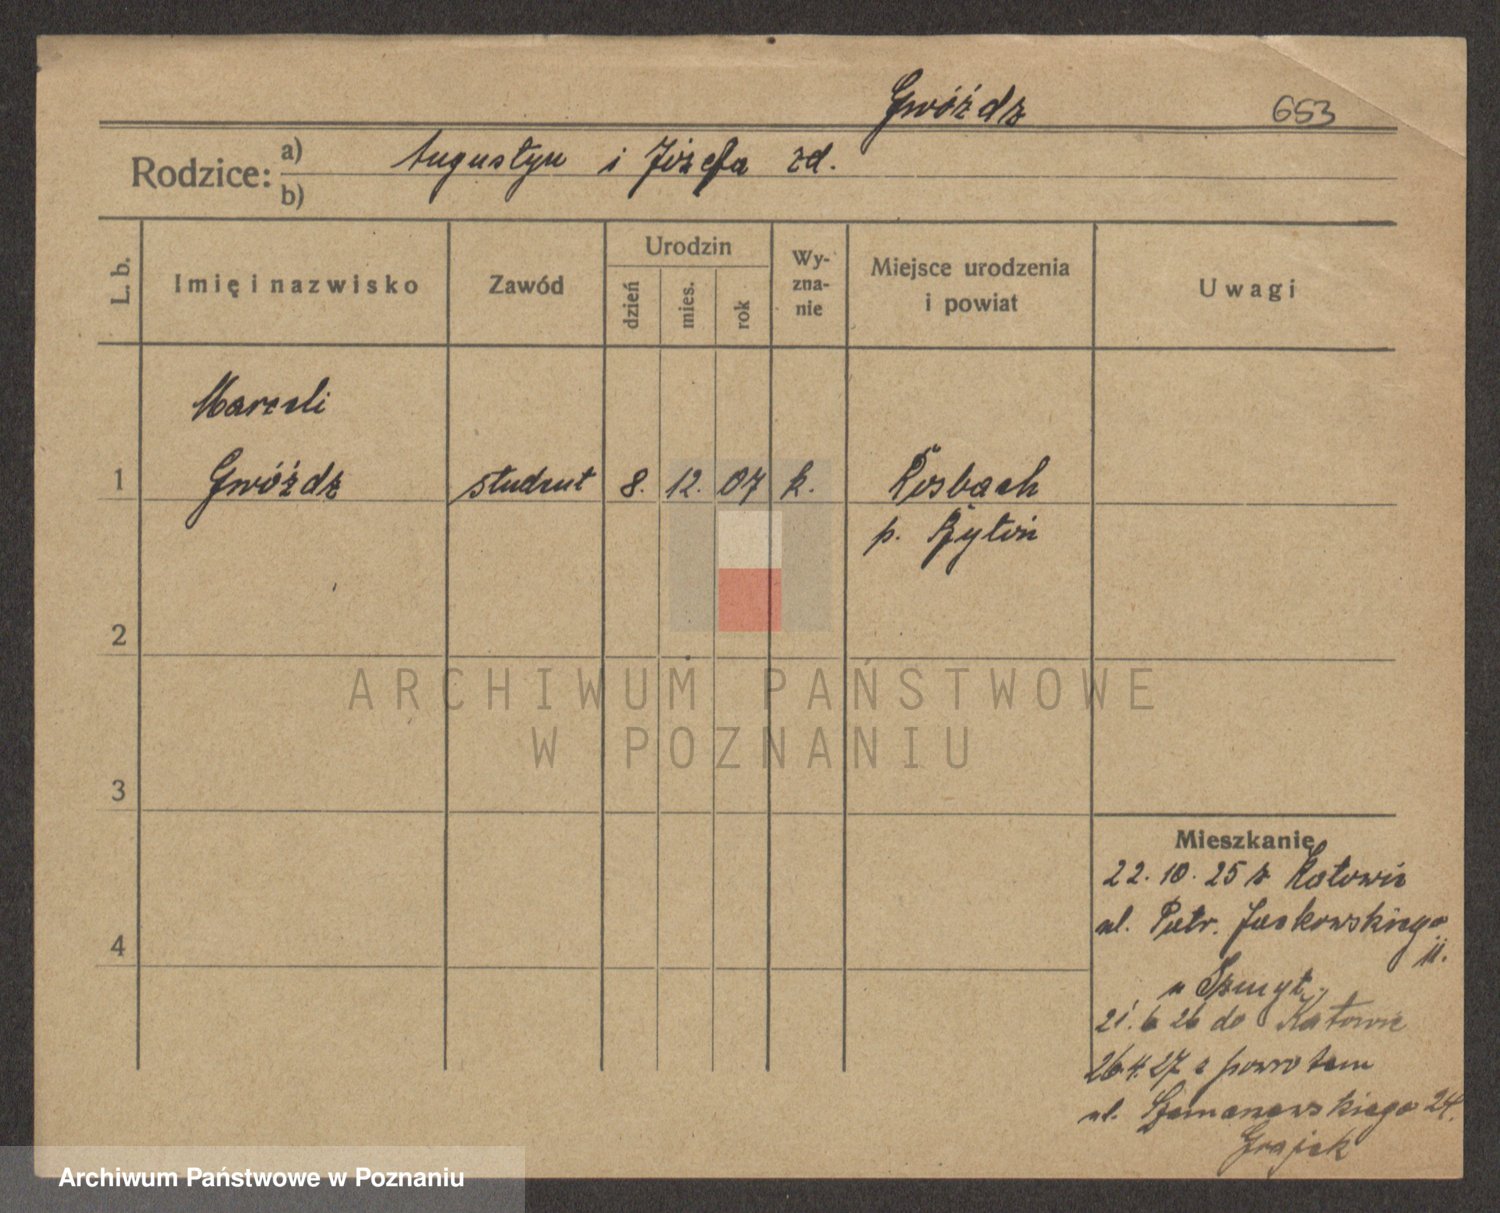 Gwóźdz 653
Rodzice: a) Augustyn i Józefa zd.
b)
L. b.
Imię i nazwisko
Zawód
Urodzin
dzień
mies.
rok
Wy-
zna-
nie
Miejsce urodzenia
i powiat
Uwagi
Marceli
1 Gwóźdz student 8. 12. 07 k. Rosbach
p. Bytoń
2
3
4
ARCHIWUM PAŃSTWOWE
W POZNANIU
Mieszkanie
22. 10. 25 z Katowic
ul. Piotr. Jackowskiego
11.
u Szmyt
21. 6 26 do Katowic
26 4. 27 z powrotem
ul. 24.
Grajek
Archiwum Państwowe w Poznaniu